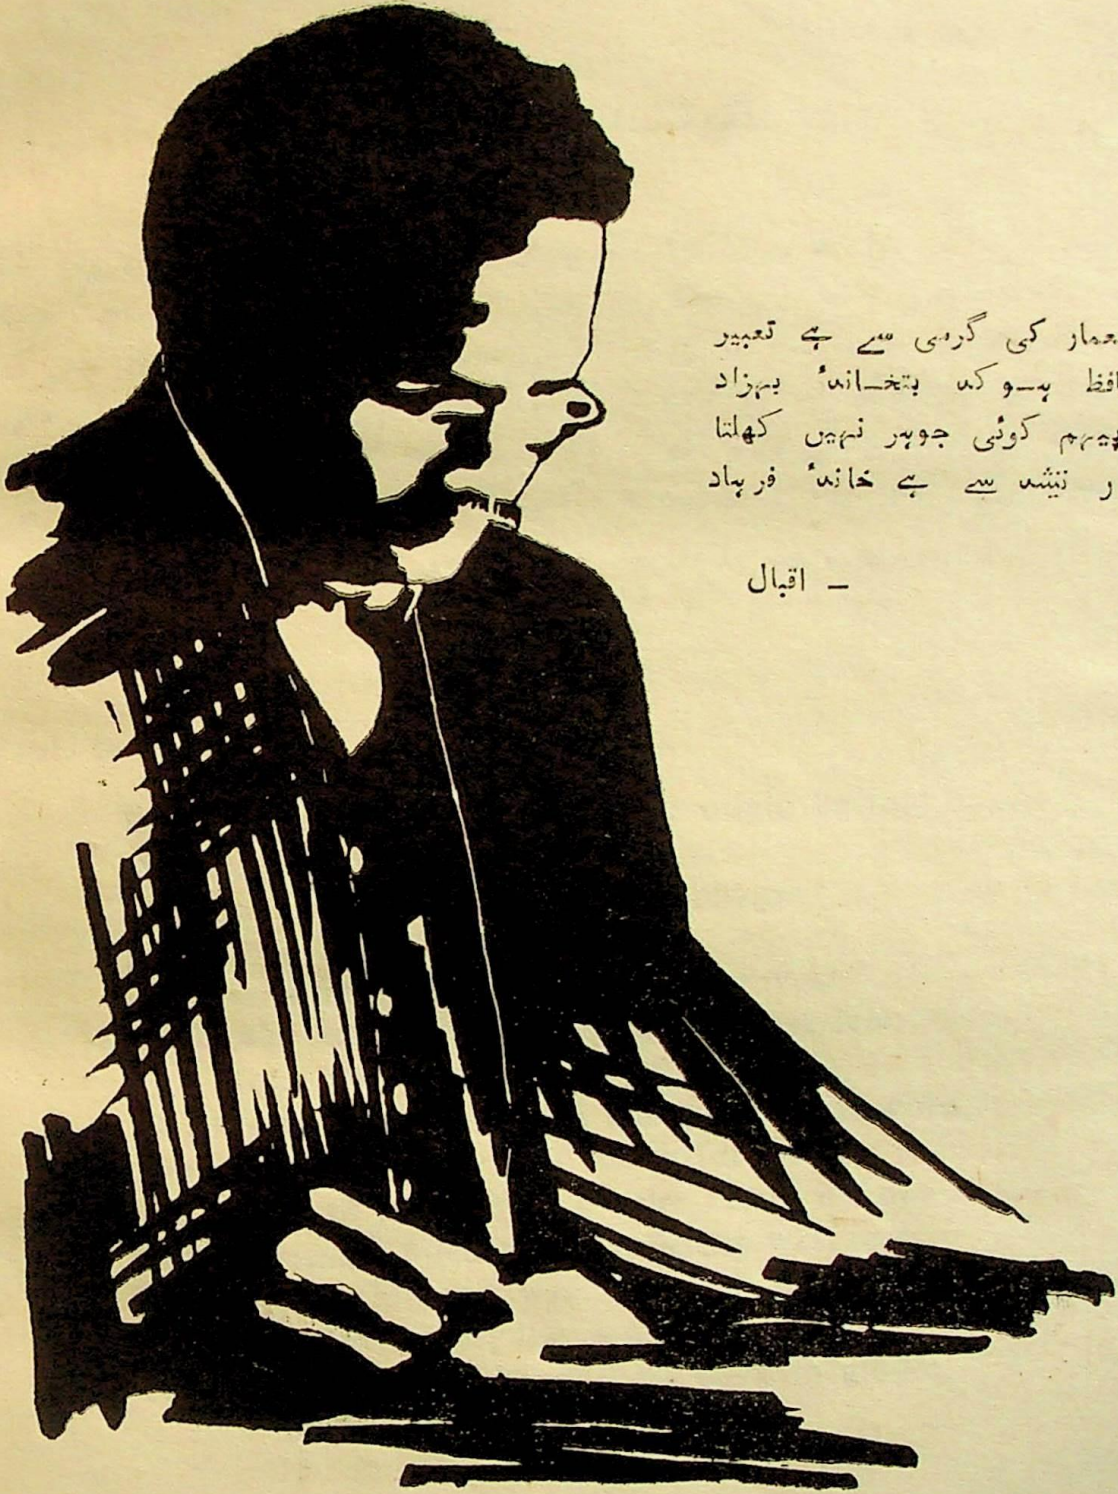 کی گرمی سے ہے تعبیر
ہــو کہ بتخــانہٴ بہزاد
پیہم کوئی جوہر نہیں کھلتا
تیشہ سے ہے خانہٴ فرہاد
— اقبال